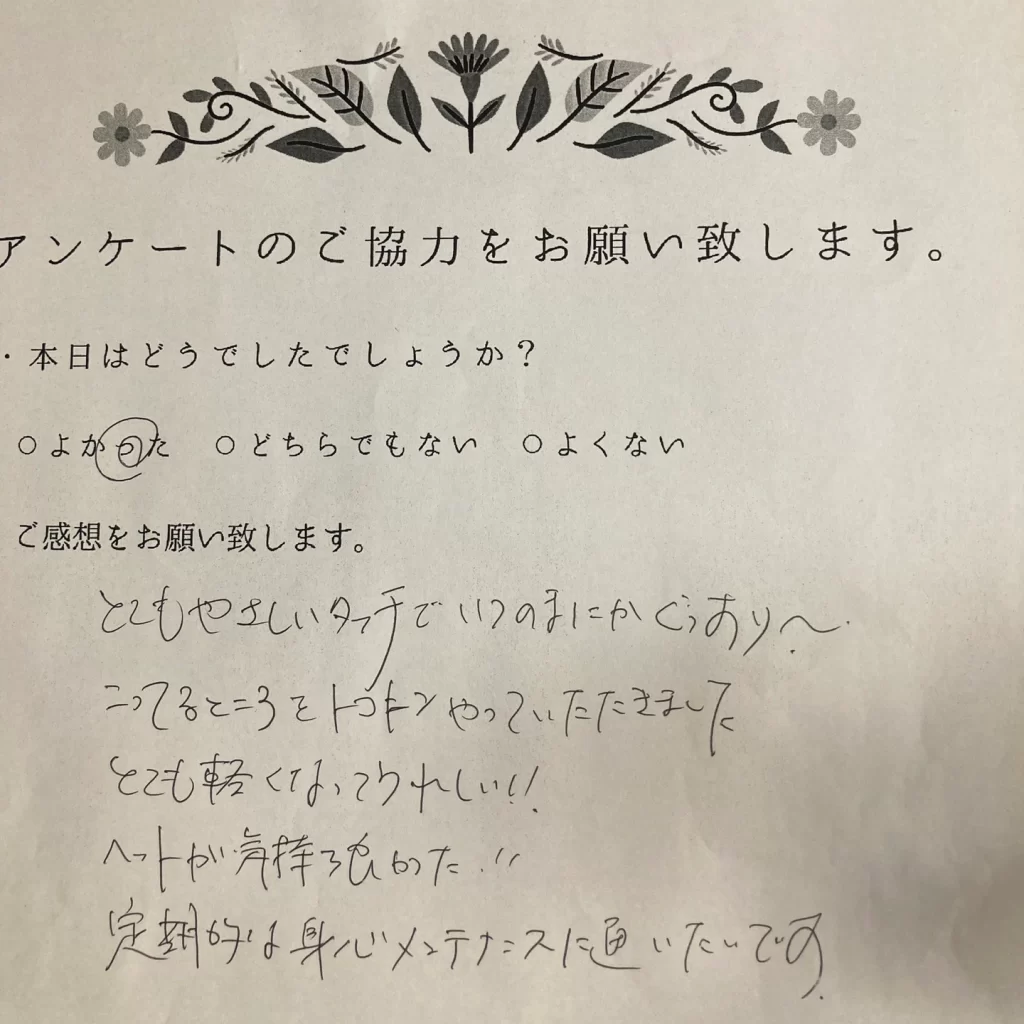 アンケートのご協力をお願い致します。
・本日はどうでしたでしょうか？
○よかった ○どちらでもない ○よくない
ご感想をお願い致します。
とてもやさしいタッチでいつのまにかぐっすり〜
こってるところをトコトンやっていただきました
とても軽くなってうれしい!!
ヘッドが気持ち良かった!!
定期的な身心メンテナンスに通いたいです。